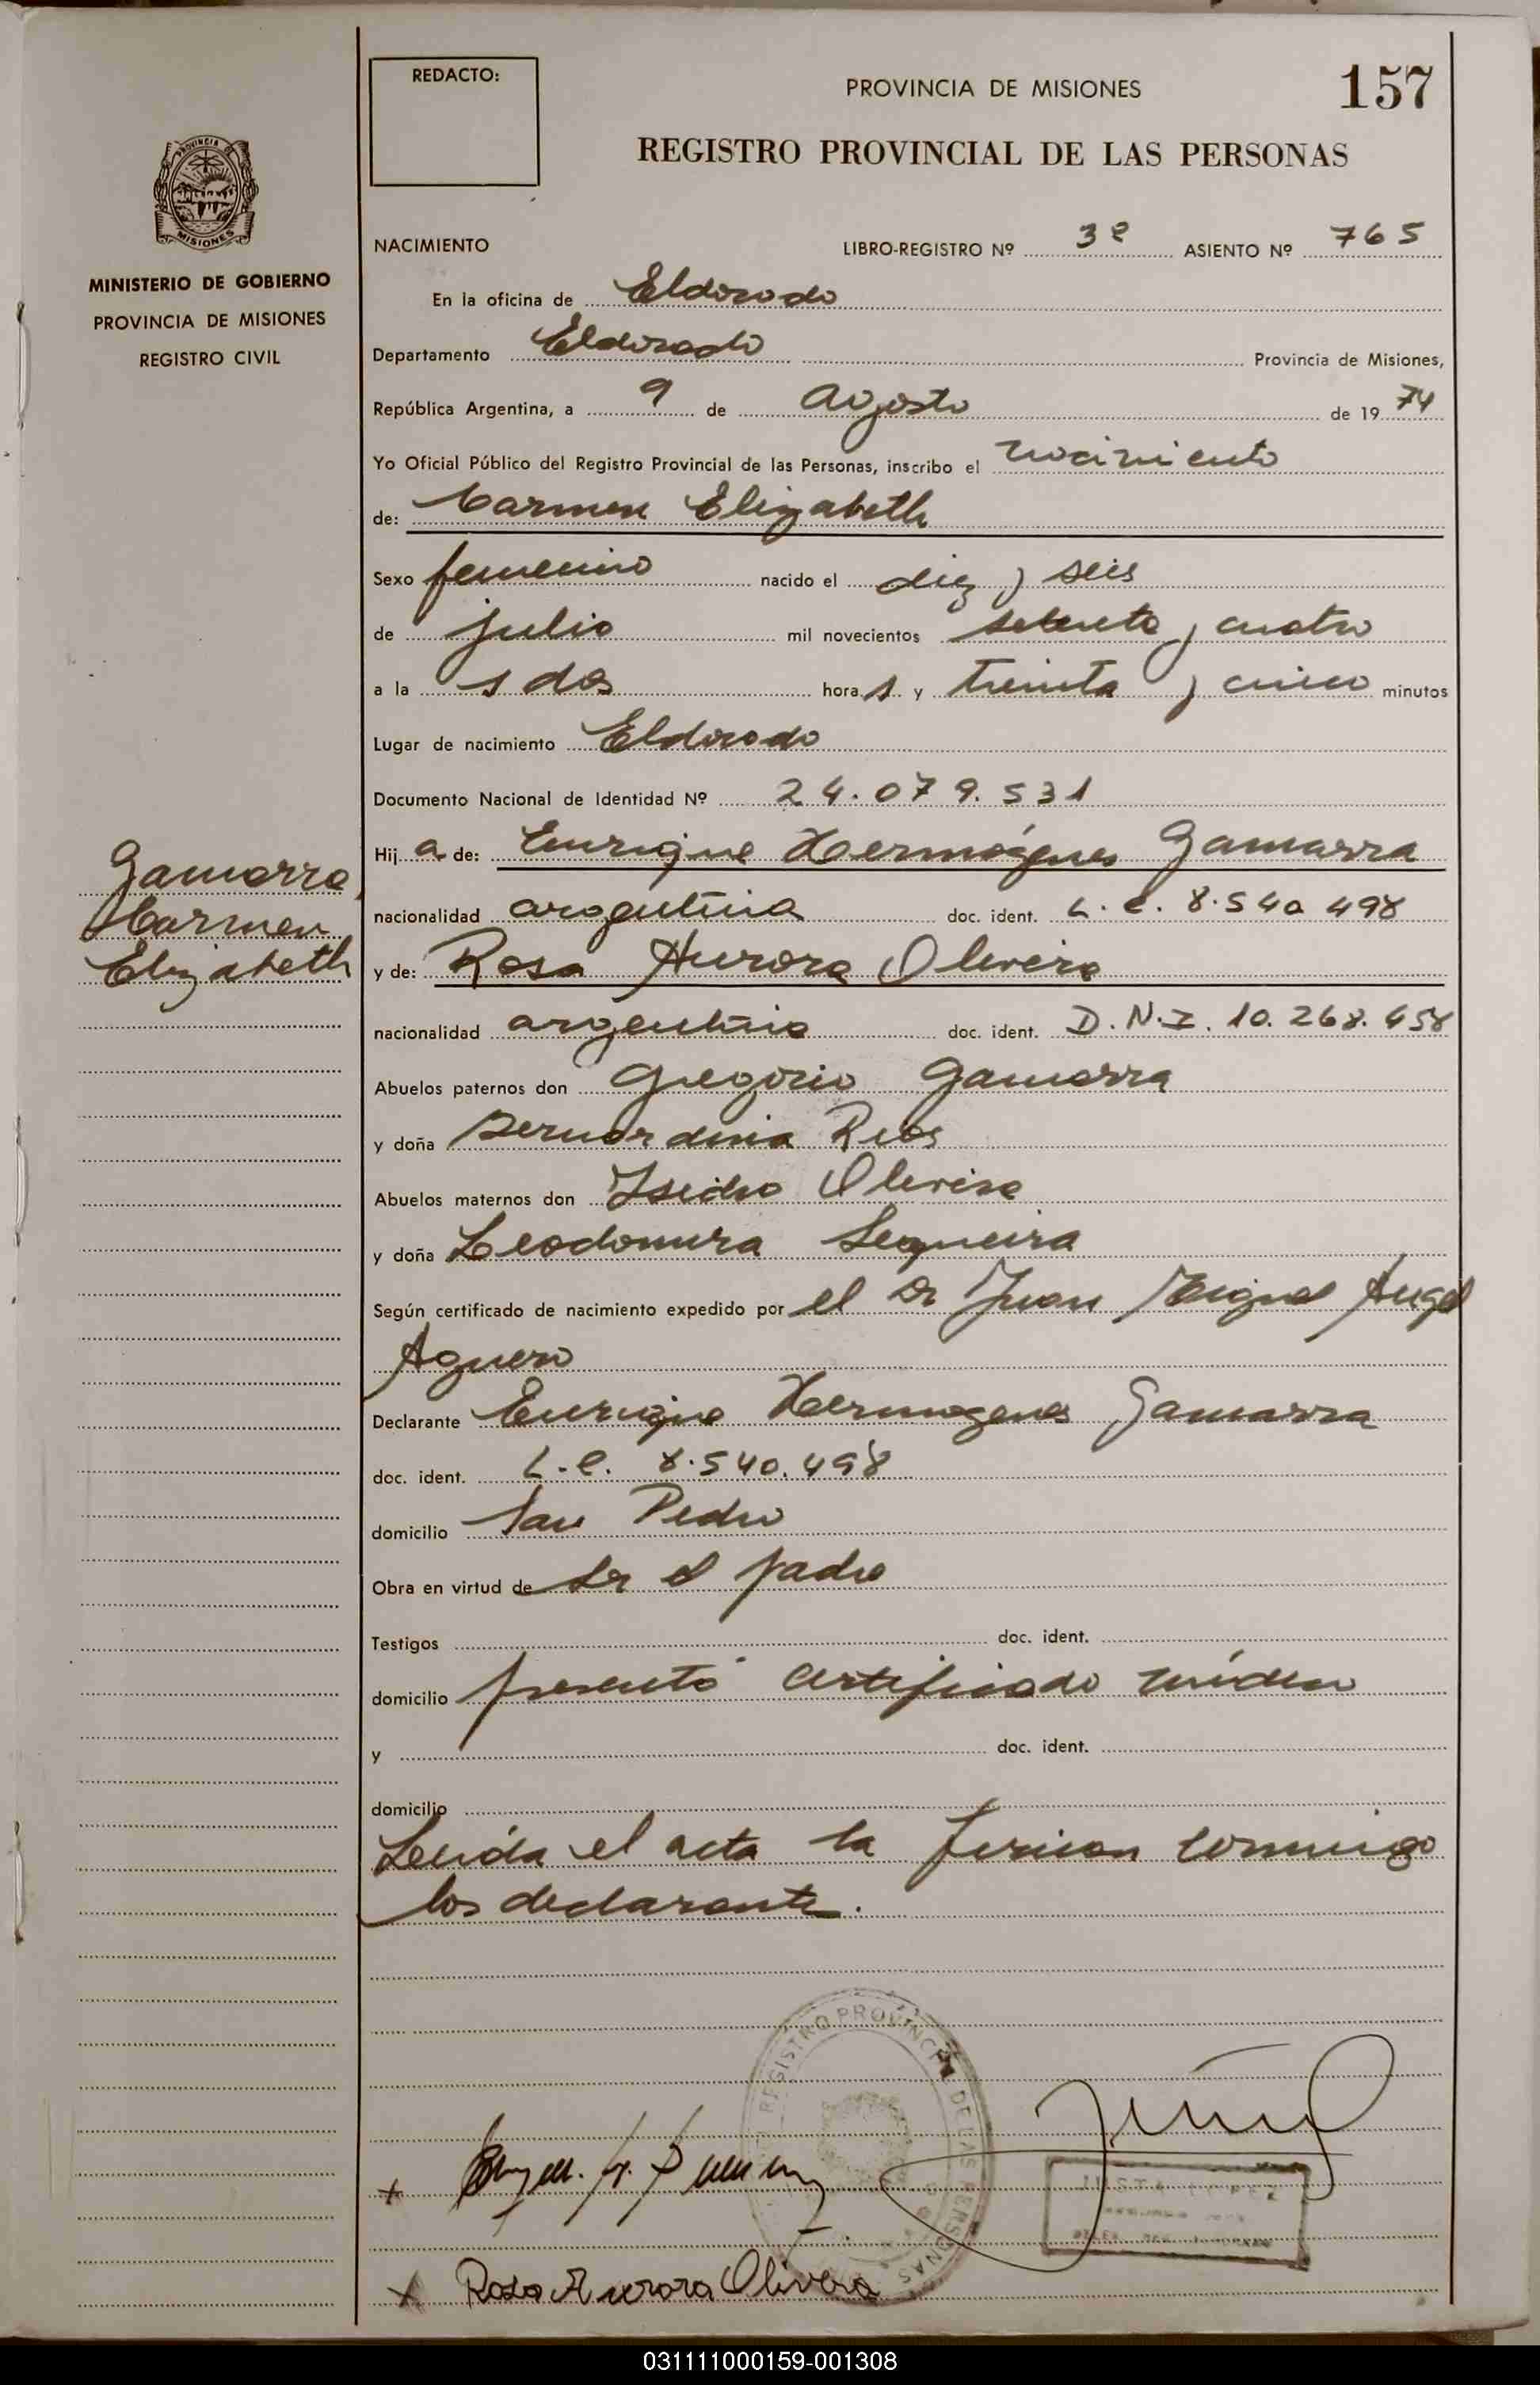 REDACTO:
PROVINCIA DE MISIONES
157
REGISTRO PROVINCIAL DE LAS PERSONAS
PROVINCIA DE
MISIONES
MINISTERIO DE GOBIERNO
PROVINCIA DE MISIONES
REGISTRO CIVIL
NACIMIENTO LIBRO-REGISTRO Nº 3º ASIENTO Nº 765
En la oficina de Eldorado
Departamento Eldorado Provincia de Misiones,
República Argentina, a 9 de agosto de 1974
Yo Oficial Público del Registro Provincial de las Personas, inscribo el nacimiento
de: Carmen Elizabeth
Sexo femenino nacido el diez y seis
de julio mil novecientos setenta y cuatro
a la s dos hora s y treinta y cinco minutos
Lugar de nacimiento Eldorado
Documento Nacional de Identidad Nº 24.079.531
Hij a de: Enrique Hermógenes Gamarra
Gamarra
Carmen
Elizabeth
nacionalidad argentina doc. ident. L.E. 8.540 498
y de: Rosa Aurora Olivera
nacionalidad argentina doc. ident. D.N.I. 10.268.458
Abuelos paternos don Gregorio Gamarra
y doña Bernardina Rios
Abuelos maternos don Isidro Olivera
y doña Leodomira Sequeira
Según certificado de nacimiento expedido por el Dr Juan Miguel Angel
Aguero
Declarante Enrique Hermogenes Gamarra
doc. ident. L.E. 8.540.498
domicilio San Pedro
Obra en virtud de ser el padre
Testigos doc. ident.
domicilio presentó certificado médico
y doc. ident.
domicilio
Leída el acta la firman conmigo
los declarante.
REGISTRO PROVINCIAL DE LAS PERSONAS
JUSTA LOPEZ
x
x Rosa Aurora Olivera
031111000159-001308